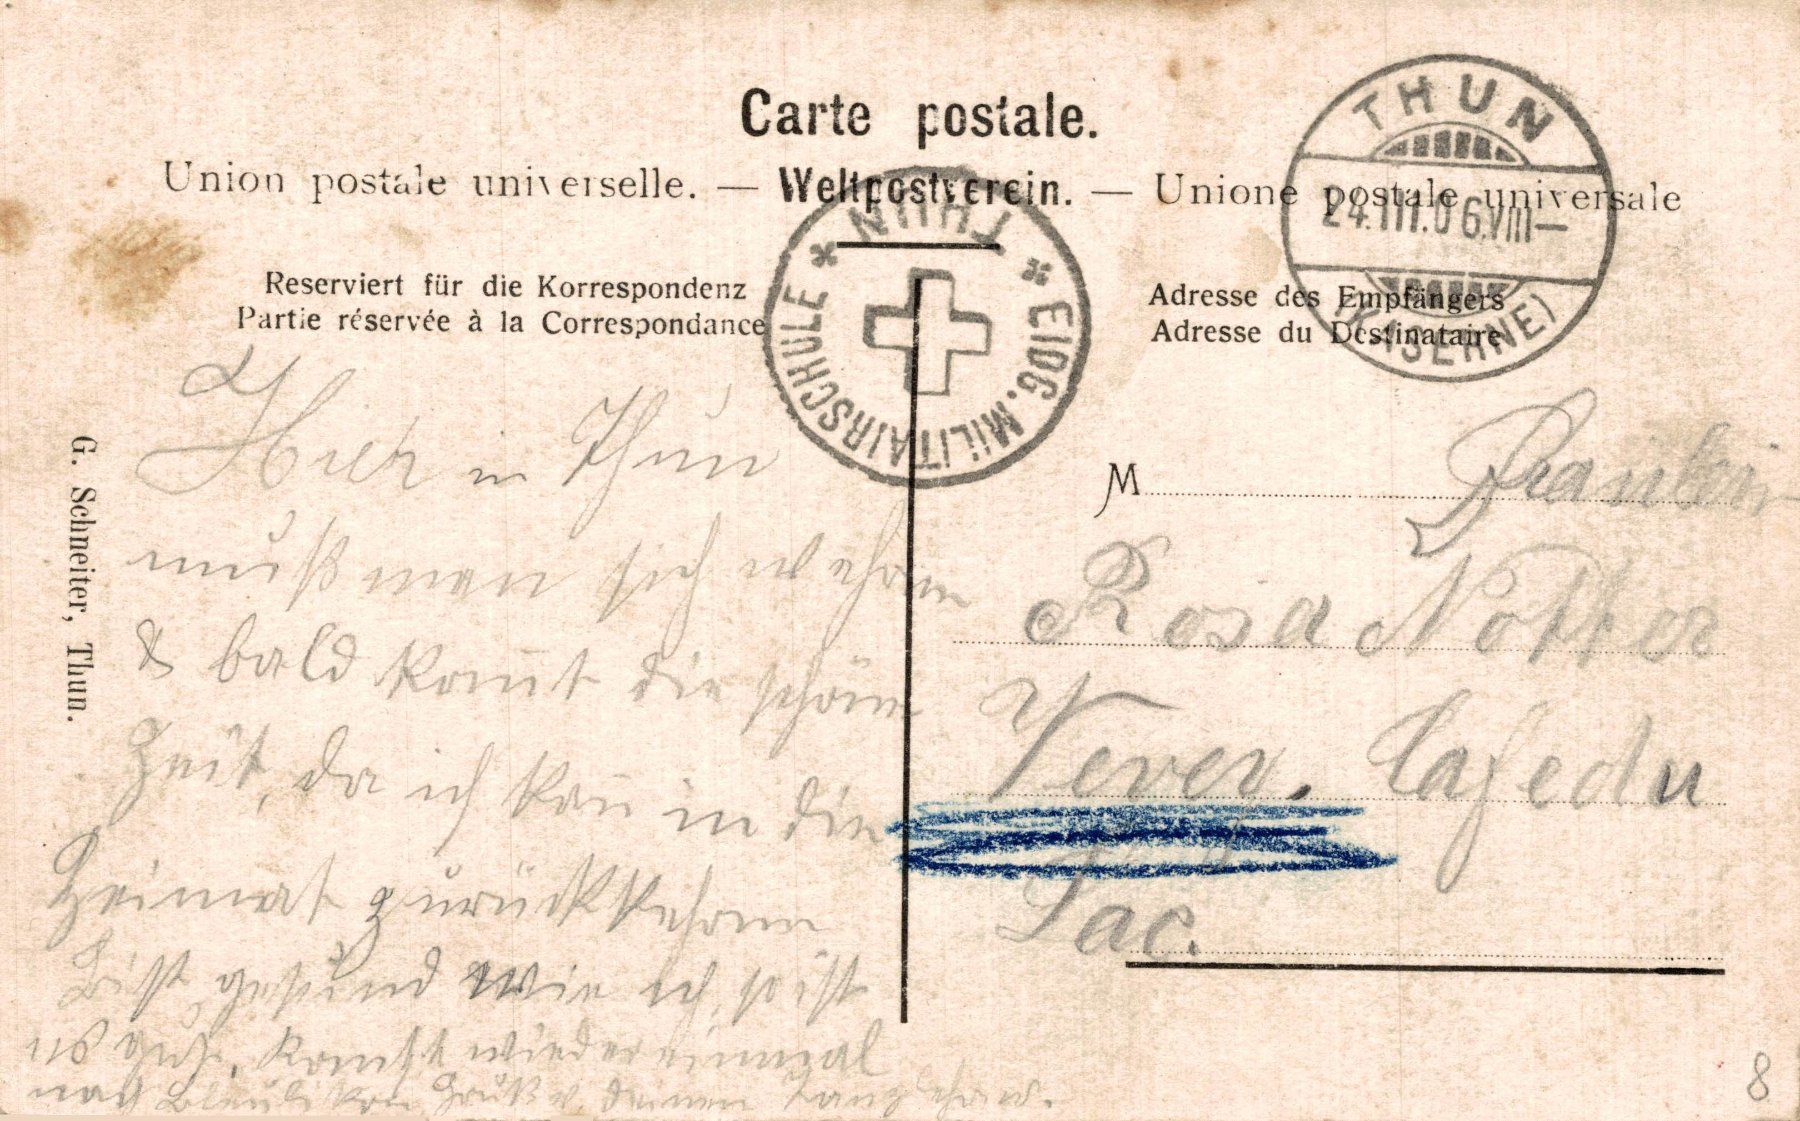 Carte postale.
Union postale universelle. — Weltpostverein. — Unione postale universale
THUN
24.III.06.VIII—
(KASERNE)
* EIDG. MILITAIRSCHULE * THUN
Reserviert für die Korrespondenz
Partie réservée à la Correspondance
Adresse des Empfängers
Adresse du Destinataire
G. Schneiter, Thun.
Hier in Thun
muß man sich wehren
& bald kommt die schöne
Zeit, da ich kann in die
Heimat zurückkehren
Bist gesund wie ich, so ist
es gut. kommst wieder einmal
nach Gruß v. deinen
M
Rosa Notter
Vevey. Cafe du
Lac.
8